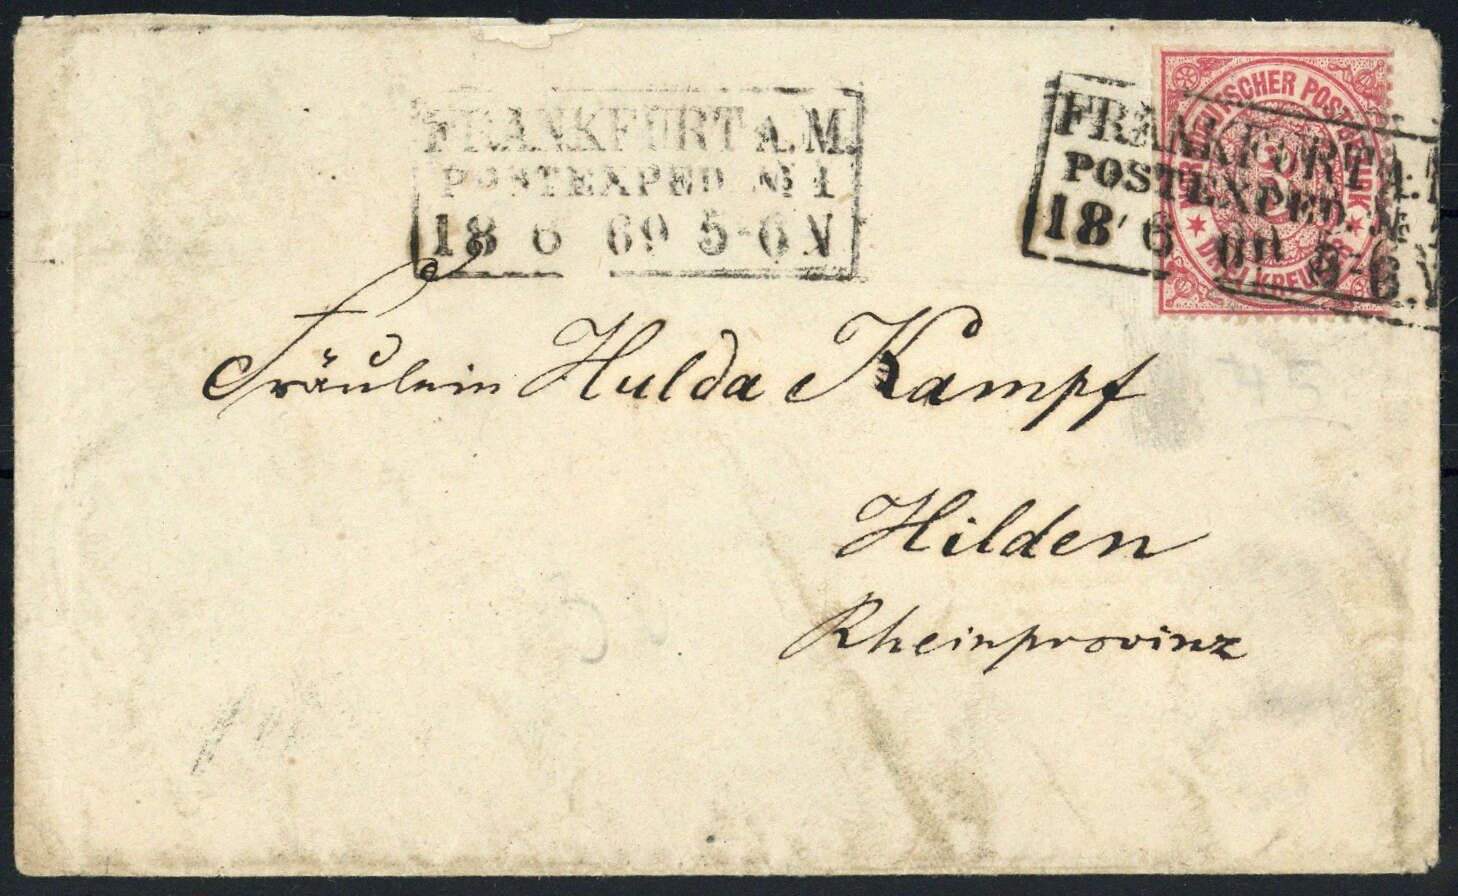 FRANKFURT A.M.
POSTEXPED. № 1
18 6 69 5-6 N
FRANKFURT A.
POSTEXPED. №
18 6 5-6.N
NORDDEUTSCHER POSTBEZIRK
DREI KREUZER
Fräulein Hulda Kampf
Hilden
Rheinprovinz